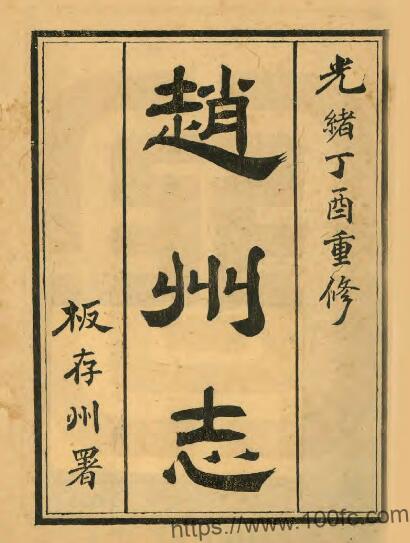 光緒丁酉重修
趙州志
板存州署
https://www.100fc.com